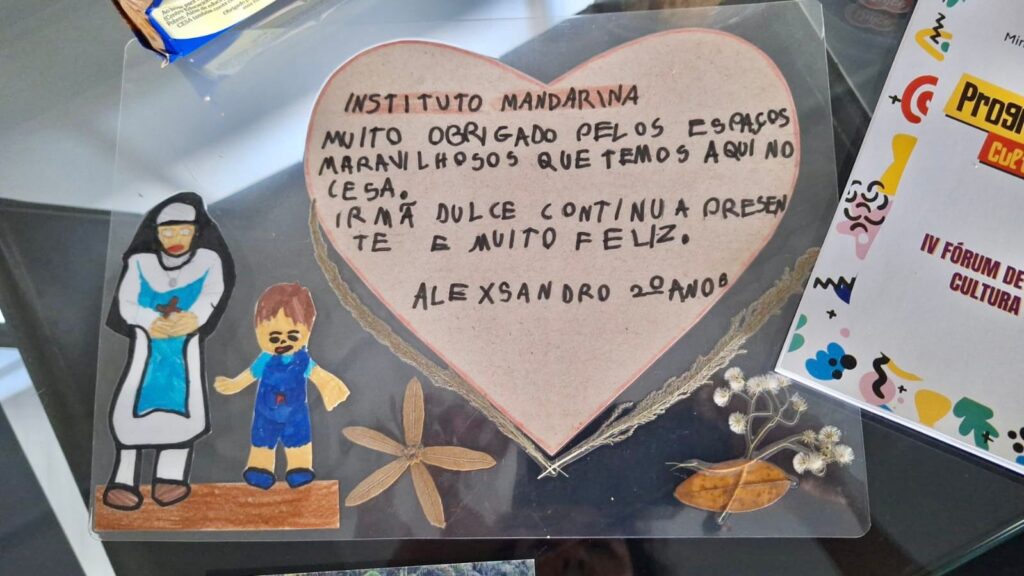 INSTITUTO MANDARINA
MUITO OBRIGADO PELOS ESPAÇOS
MARAVILHOSOS QUE TEMOS AQUI NO
CESA.
IRMÃ DULCE CONTINUA PRESEN
TE E MUITO FELIZ.
ALEXSANDRO 2º ANO B
Progr
CULT
IV FÓRUM DE
CULTURA